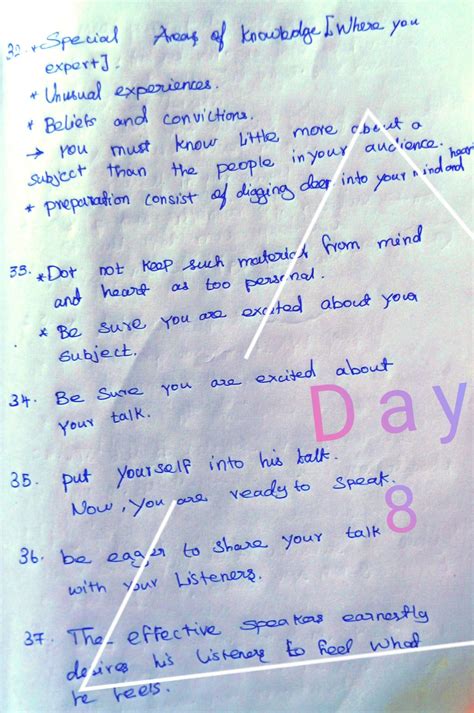 32. * Special Areas of knowledge [Where you
expert].
* Unusual experiences.
* Beliefs and convictions.
→ You must know little more about a
subject than the people in your audience.
* preparation consist of digging deep into your mind and heart
33. * Dot not keep such material from mind
and heart as too personal.
* Be sure you are excited about your
subject.
34. Be Sure you are excited about
your talk.
Day
35. put yourself into his talk.
Now, you are ready to speak.
8
36. be eager to share your talk
with your Listeners.
37. The effective speakers earnestly
desires his listeners to feel what
he feels.